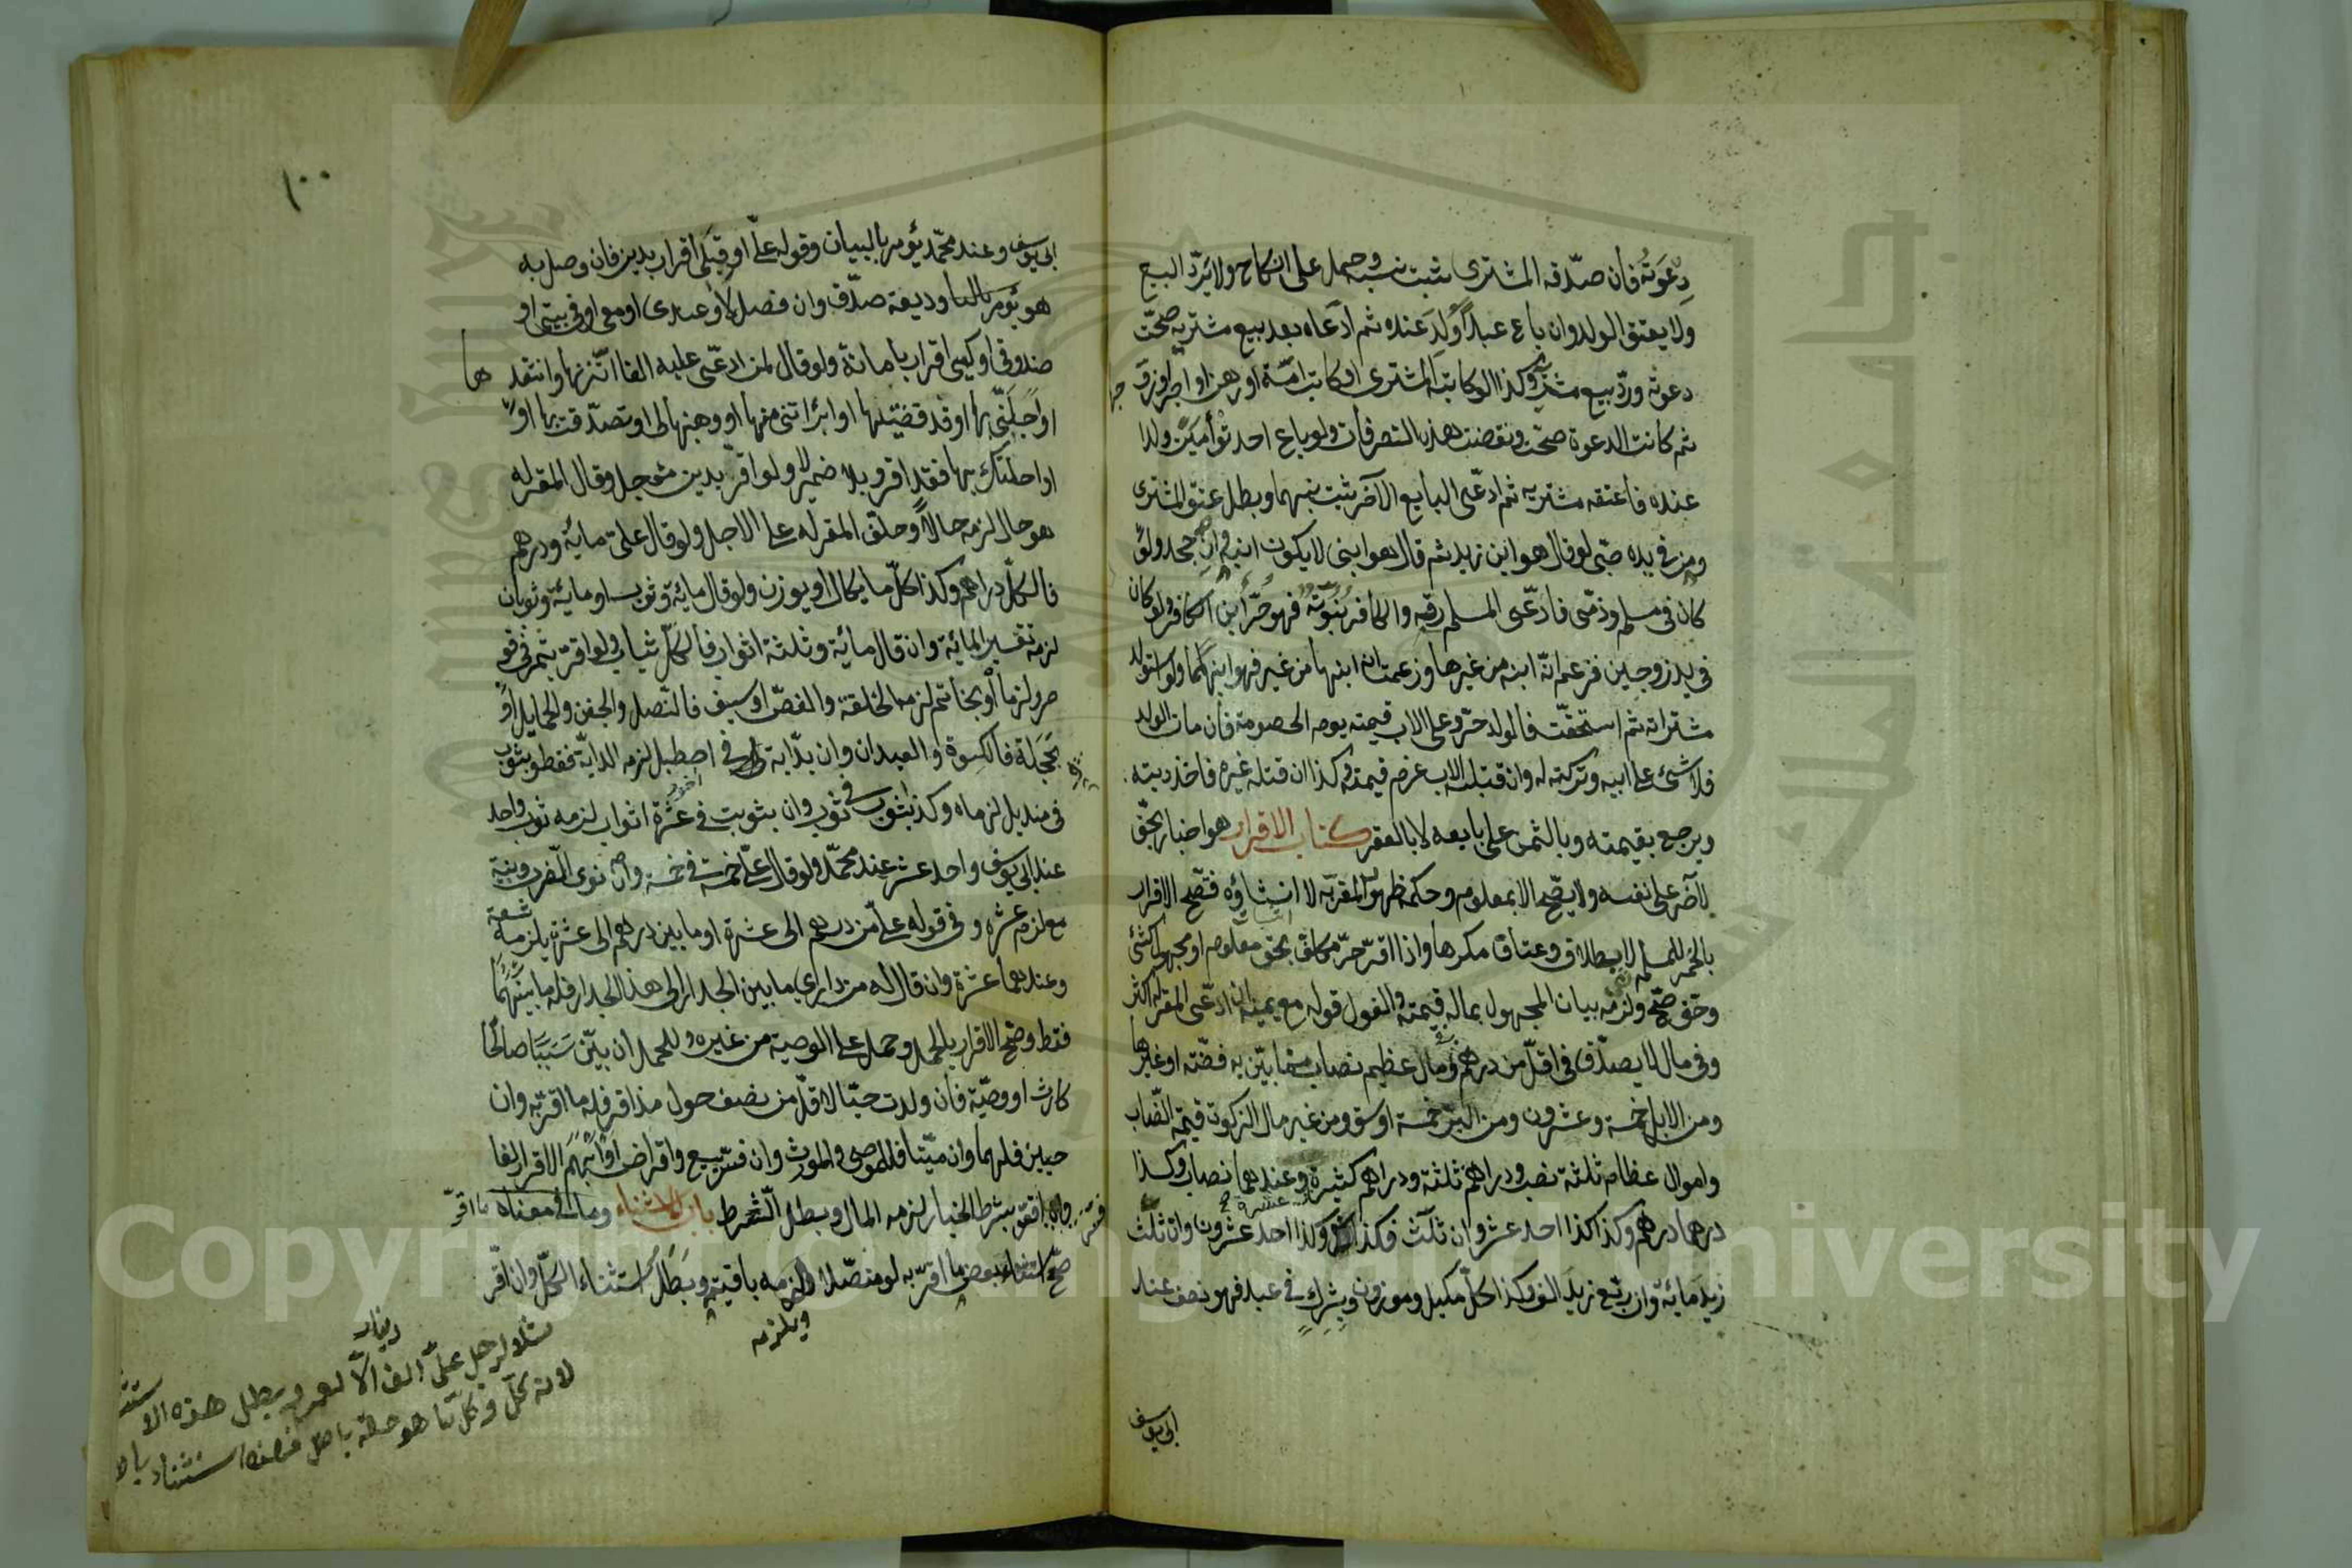 دِعوَتُه فان صدّقه المشترى يثبت نسبه وحمل على النكاح ولا يَرُدّ البيع
ولا يعتق الولد وان باع عبدًا وُلِدَ عنده ثم ادّعاه بعد بيع مشتريه صحّت
دعوته وردّ بيع مشتريه وكذا لو كاتبه المشترى او كاتب امّه او رهن او اجر او زوّجها
ثم كانت الدعوة صحّت ونقضت هذه التصرفات ولو باع احد توأمين ولدا
عنده فاعتقه مشتريه ثم ادّعى البايع الآخر ثبت نسبهما وبطل عتق المشترى
ومن فى يده صبى لو قال هو ابن زيد ثم قال هو ابنى لا يكون ابنه وان جحد ولو
كان فى مسلم وذمّى فادّعى المسلم رقه والكافر بُنوّته فهو حرّ ابن الكافر ولو كان
فى يد زوجين فزعم انّه ابنه من غيرها وزعمت انه ابنها من غيره فهو ابنهما ولو استولد
مشتراته ثم استحقّت فالولد حرّ وعلى الاب قيمته يوم الخصومة فان مات الولد
فلا شئ على ابيه وتركته له وان قتله الاب غرم قيمته وكذا ان قتله غيره فاخذ ديته
ويرجع بقيمته وبالثمن على بايعه لا بالعقر كتاب الاقرار هو اخبار بحقّ
لآخر على نفسه ولا يصحّ الا بمعلوم وحكمه ظهور المقرّ به لا انشاؤه فتصحّ الاقرار
بالخمر للمسلم لا بطلاق وعتاق مكرها واذا اقرّ حرّ مكلف بحق معلوم او مجهول كشئ
وحق صحّ ولزمه بيان المجهول بماله قيمته والقول قوله مع يمينه ان ادّعى المقر له اكثر
وفى مال لا يصدّق فى اقلّ من درهم ومال عظيم نصاب مما بيّن به فضّة او غيرها
ومن الابل خمسة وعشرون ومن البرّ خمسة اوسق ومن غير مال الزكوة قيمة النصاب
واموال عظام ثلثة نصب ودراهم ثلثة ودراهم كثيرة عشرة وعندهما نصاب وكذا
درهما درهم وكذا كذا احد عشر وان ثلّث فكذا وكذا وكذا احد عشرون وان ثلث
زيد مائة وان ربّع زيد الف وكذا كلّ مكيل وموزون وبشرك فى عبد فهو نصف عند
ابى يوسف
١٠٠
ابى يوسف وعند محمّد يؤمر بالبيان وقوله علىّ او قِبَلى اقرار بدين فان وصل به
هو وديعة صدّق وان فصل لا وعندى او معى او فى بيتى او
صندوقى او كيسى اقرار بامانة ولو قال لمن ادّعى عليه الفا اتّزنها وانتقدها
او اجّلنى بها او قد قضيتكها او ابرأتنى منها او وهبتها لى او تصدّقت بها او
او احلتك بها فقد اقر وبلا ضمير لا ولو اقرّ بدين مؤجل وقال المقر له
هو حال لزمه حالاً وحلّف المقر له على الاجل ولو قال علىّ مائة ودرهم
فالكلّ دراهم وكذا كلّ ما يكال او يوزن ولو قال مائة وثوب او مائة وثوبان
لزمه تفسير المائة وان قال مائة وثلثة اثواب فالكلّ ثياب ولو اقرّ بتمر فى قو
صره لزماه او بخاتم لزمه الحلقة والفصّ او سيف فالنّصل والجفن والحمايل او
بحَجَلة فالكسوة والعيدان وان بدابّة فى اصطبل لزمه الدابّة فقط وبثوب
فى منديل لزماه وكذا بثوب فى ثوب وان بثوب فى عشرة اثواب لزمه ثوب واحد
عند ابى يوسف واحد عشر عند محمّد ولو قال علىّ خمسة فى خمسة وان نوى الضرب وبنيّة
مع لزم عشرة وفى قوله علىّ من درهم الى عشرة او ما بين درهم الى عشرة يلزمه تسعة
وعندهما عشرة وان قال له من دارى ما بين الجدار الى هذا الجدار فله ما بينهُما
فقط وصحّ الاقرار بالحمل وحمل على الوصية من غيره وللحمل ان بيّن سَبَبًا صالحًا
كارث او وصيّة فان ولدت حيّا لاقلّ من نصف حول مذ اقر فله ما اقرّ به وان
حيين فلهما وان ميّتا فللموصى والمورث وان فسّر ببيع واقراض او اَبْهَمَ الاقرار لغا
وان اقرّ بشرط الخيار لزمه المال وبطل الشّرط باب الاستثناء وما فى معناه
صحّ استثناء بعض ما اقرّ به لو متصلا ولزمه باقيه وبَطَلَ استثناء الكلّ وان اقرّ
ويلزمه
دينار
مثلا لرجل علىّ الف الّا ويبطل هذه الا